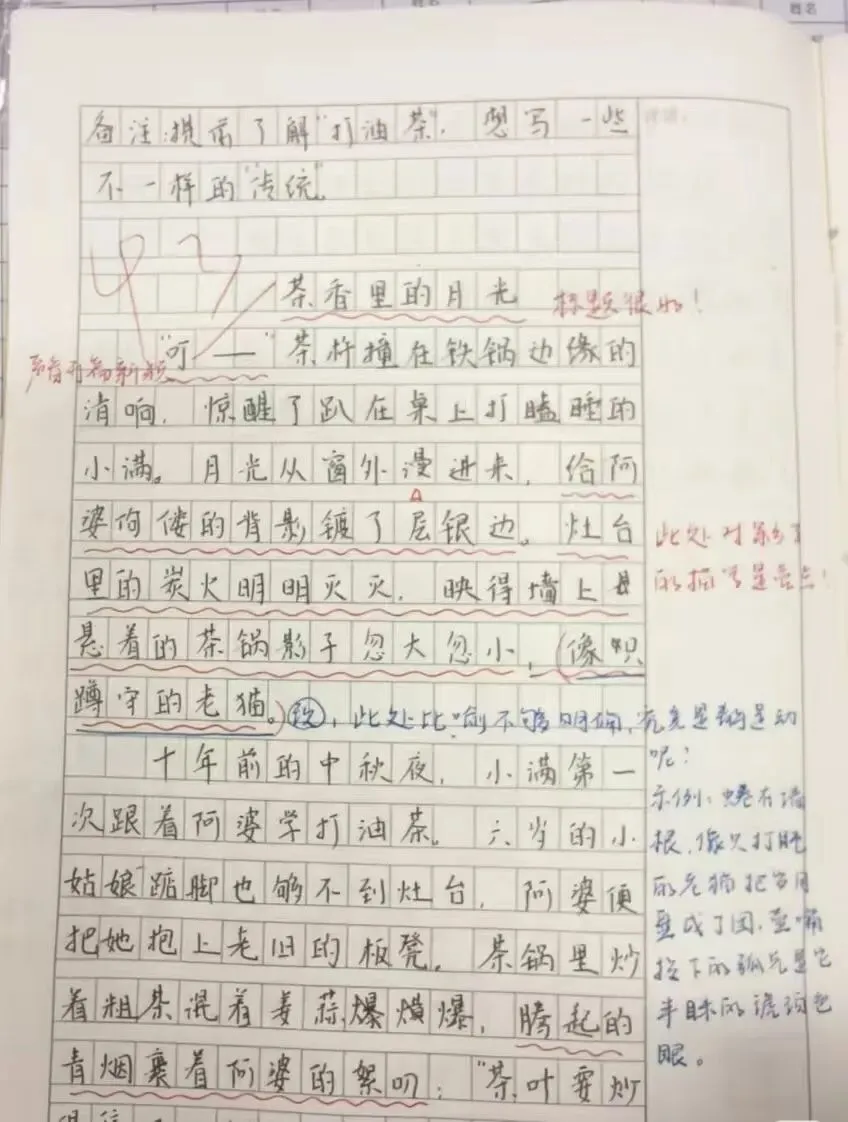 姓名
姓名
备注:提前了解"打油茶",想写一些
不一样的"传统"
43
茶香里的月光
标题很好!
"叮——"茶杵撞在铁锅边缘的
声音开篇新颖
清响,惊醒了趴在桌上打瞌睡的
小满。月光从窗外漫进来,给阿
婆佝偻的背影镀了层银边。灶台
此处对影子
的描写是亮点!
里的炭火明明灭灭,映得墙上
悬着的茶锅影子忽大忽小,(像只
蹲守的老猫。)
改,此处比喻不够明确,究竟是静是动
呢?
十年前的中秋夜,小满第一
次跟着阿婆学打油茶。六岁的小
姑娘踮脚也够不到灶台,阿婆便
把她抱上老旧的板凳。茶锅里炒
着粗茶混着姜蒜爆爆,腾起的
青烟裹着阿婆的絮叨:"茶叶要炒
示例:蜷在墙
根,像只打盹
的老猫把岁月
叠成了团,壶嘴
投下的弧光是它
半眯的琥珀色
眼。